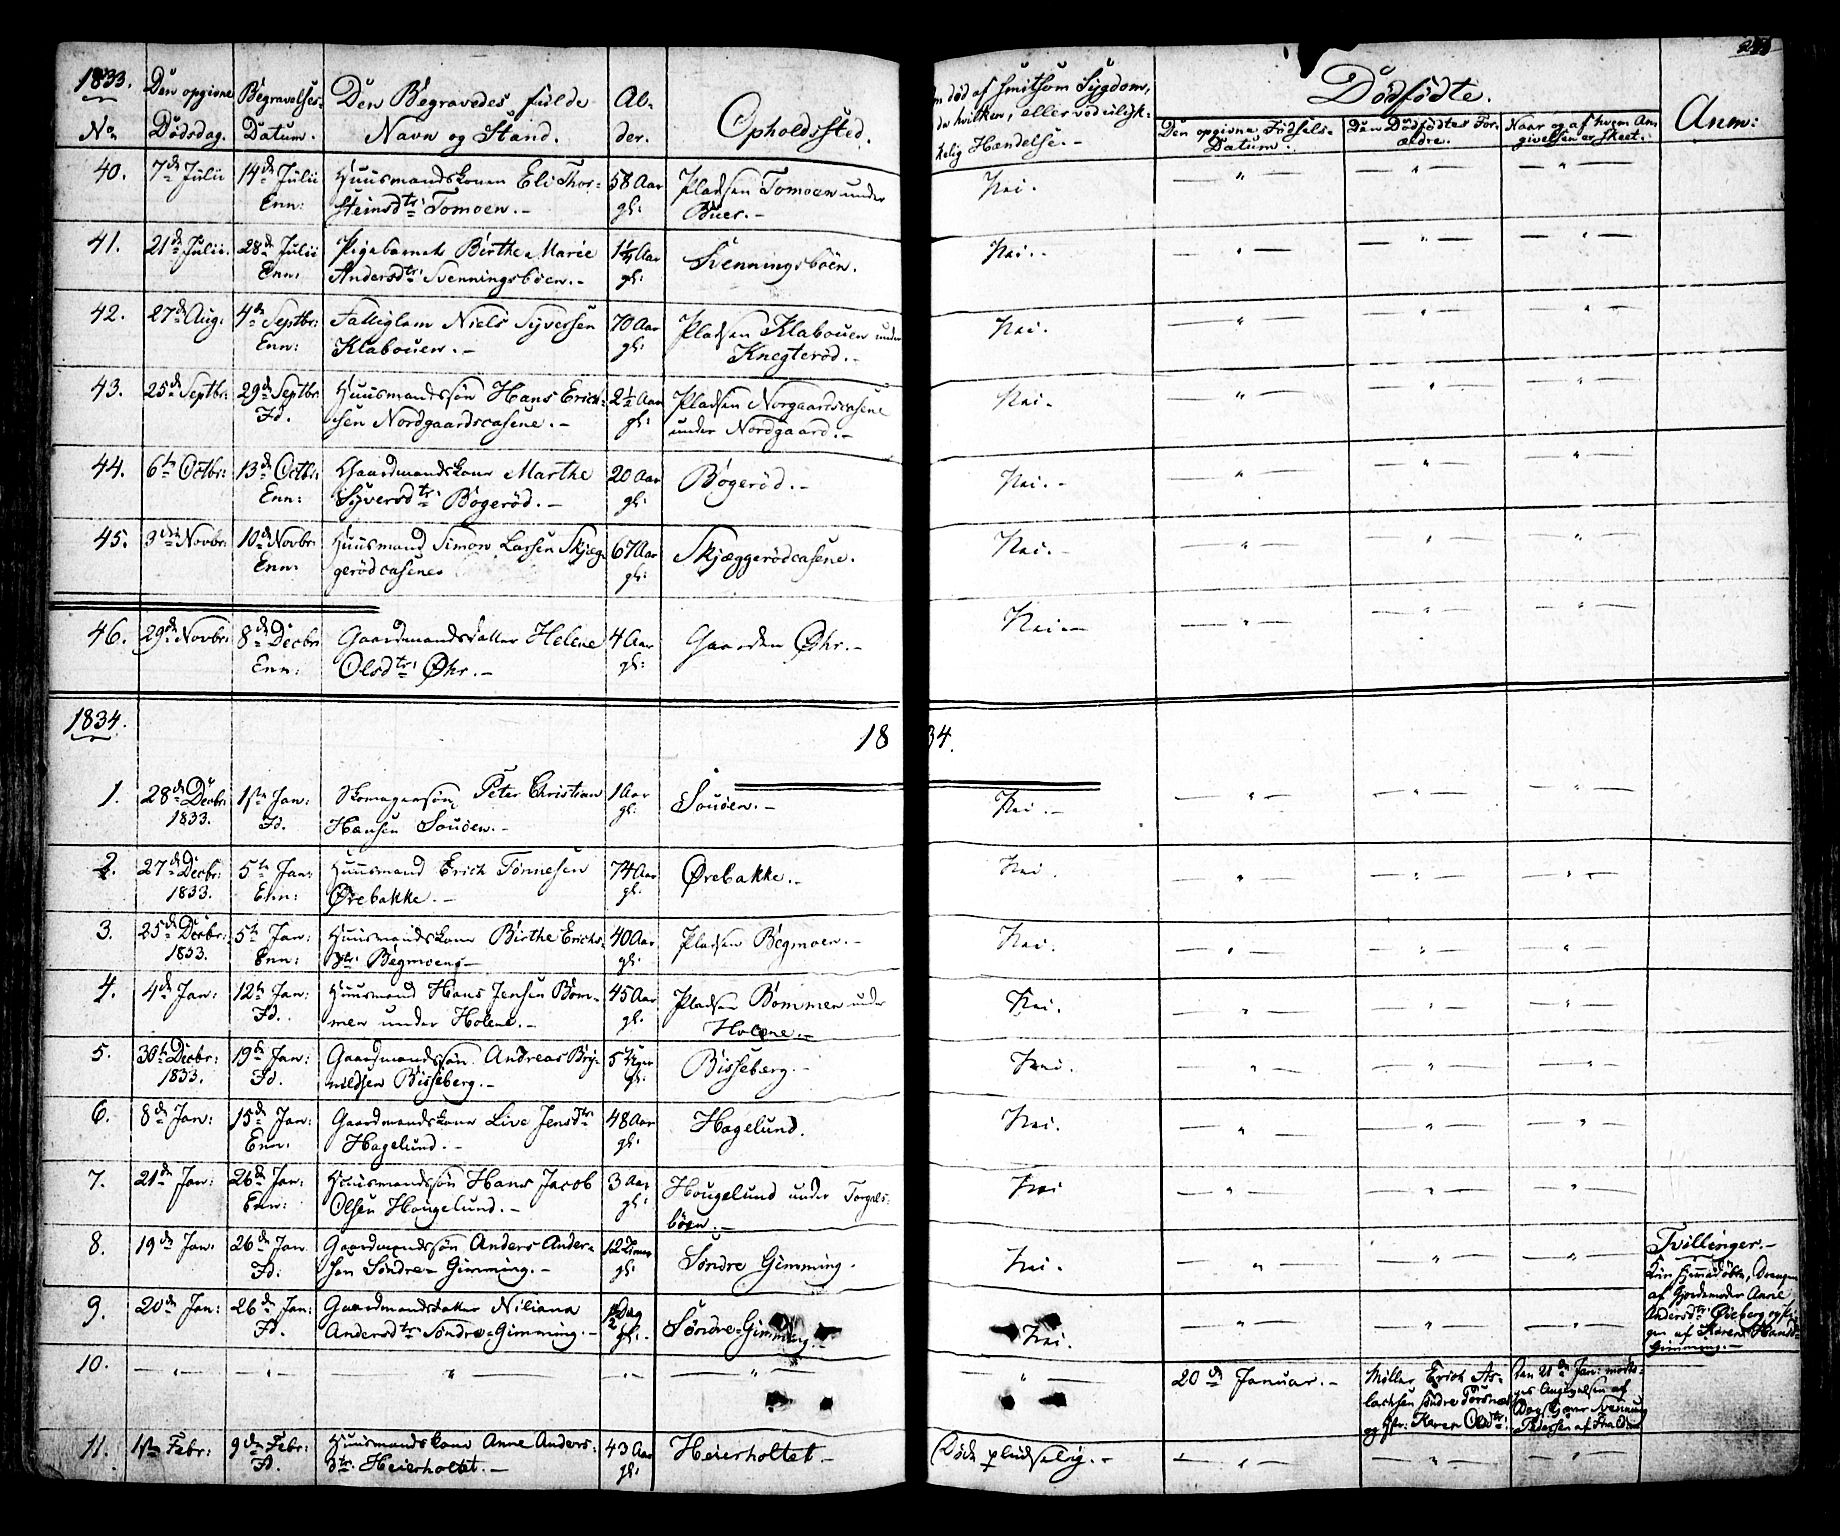 1833.
No
Den opgivne
Dødsdag.
Begravelses-
Datum.
Den Begravedes fulde
Navn og Stand.
Al-
der.
Opholdssted.
død af smitsom Sygdom,
hvilken, eller ved ulyk-
kelig Hændelse.-
Dødfødte.
Den opgivne Fødsels-
Datum.
Den Dødfødtes For-
ældre.
Naar og af hvem An-
givelsen er skeet.
Anm:
40. 7de Julii 14de Julii Huusmandskonen Eli Thor- 58 Aar Pladsen Tomoen under Nei. — " — — " — — " —
Enn: steinsdtr: Tomoen.- gl: Buer.-
41. 21de Julii. 28de Julii Pigebarnet Birthe Marie 1½ Aar Svenningsbøen. Nei.- — " — — " — — " —
Enn: Andersdtr: Svenningsbøen.- gl:
42. 27de Aug: 4de Septbr: Fattiglem Niels Syversen 70 Aar Pladsen Klabouen under Nei. — " — — " — — " —
Enn: Klabouen.- gl: Knegterød.-
43. 25de Septbr: 29de Septbr: Huusmandssøn Hans Erich- 2½ Aar Pladsen Norgaardscasene Nei. — " — — " — — " —
Fd. sen Nordgaardscasene.- gl: under Nordgaard.-
44. 6te Octbr: 13de Octbr: Gaardmandskone Marthe 20 Aar Bøgerød.- Nei.- — " — — " — — " —
Enn: Syversdtr: Bøgerød.- gl:
45. 9de Novbr: 10de Novbr: Huusmand Simon Larsen Skjæg- 67 Aar Skjæggerødcasene. Nei.- — " — — " — — " —
Enn: gerødcasene. gl:
46. 29de Novbr: 8de Decbr: Gaardmandsdatter Helene 4 Aar Gaarden Øhr.- Nei.— — " — — " — — " —
Enn: Olsdtr: Øhr.- gl:
1834.
1834.
1. 28de Decbr: 1ste Jan: Skomagersøn Peter Christian 1 Aar Souøen.- Nei.- — " — — " — — " —
1833. Fd. Hansen Souøen.- gl:
2. 27de Decbr: 5te Jan: Huusmand Erich Tönnesen 74 Aar Ørebakke.- Nei. — " — — " — — " —
1833. Enn: Ørebakke.- gl:
3. 25de Decbr: 5te Jan: Huusmandskone Birthe Erichs- 40 Aar Pladsen Begmoen.- Nei. — " — — " — — " —
1833. Enn: dtr: Begmoen,- gl:
4. 4de Jan: 12te Jan: Huusmand Hans Jensen Bom- 45 Aar Pladsen Bommen under Nei. — " — — " — — " —
Fd. men under Holene.- gl. Holene.-
5. 30te Decbr: 19de Jan: Gaardmandssøn Andreas Bry- 5 Uger Bisseberg.- Nei. — " — — " — — " —
1833. Fd. nildsen Bisseberg.- gl.
6. 8de Jan: 15de Jan: Gaardmandskone Live Jensdtr: 48 Aar Hagelund. Nei. — " — — " — — " —
Enn: Hagelund.- gl:
7. 21de Jan: 26de Jan: Huusmandssøn Hans Jacob 3 Aar Hougelund under Torgals- Nei — " — — " — — " —
Enn: Olsen Hougelund.- gl: bøen.-
8. 19de Jan: 26de Jan Gaardmandssøn Anders Ander- 12 Timer Søndre Gimming. Nei. — " — — " — — " —
Fd: sen Søndre-Gimming.- gl:
9. 20de Jan: 26de Jan: Gaardmandsdatter Niliana Dag Søndre-Gimming.- Nei. — " — — " — — " —
Fd. Andersdtr: Søndre-Gimming.- gl:
Tvillinger.-
hjemmedøbte, Drengen
af Gjordemoder Anne
Andersdtr: Øieberg og Pi-
gen af Karen Hansd-
Gimming.-
10. — " — — " — — " — — " — — " — — " — 20de Januar.- Møller Erich As- Den 21de Jan:
lachsen Søndre Torsnes Angivelsen af
og Hstr: Karen Olsdtr: Svenning
Pedersen
11. 1ste Febr: 9de Febr: Huusmandskone Anne Anders- 43 Aar Heierholtet.- Døde pludselig.- — " — — " — — " —
Fd. dtr: Heierholtet.- gl: